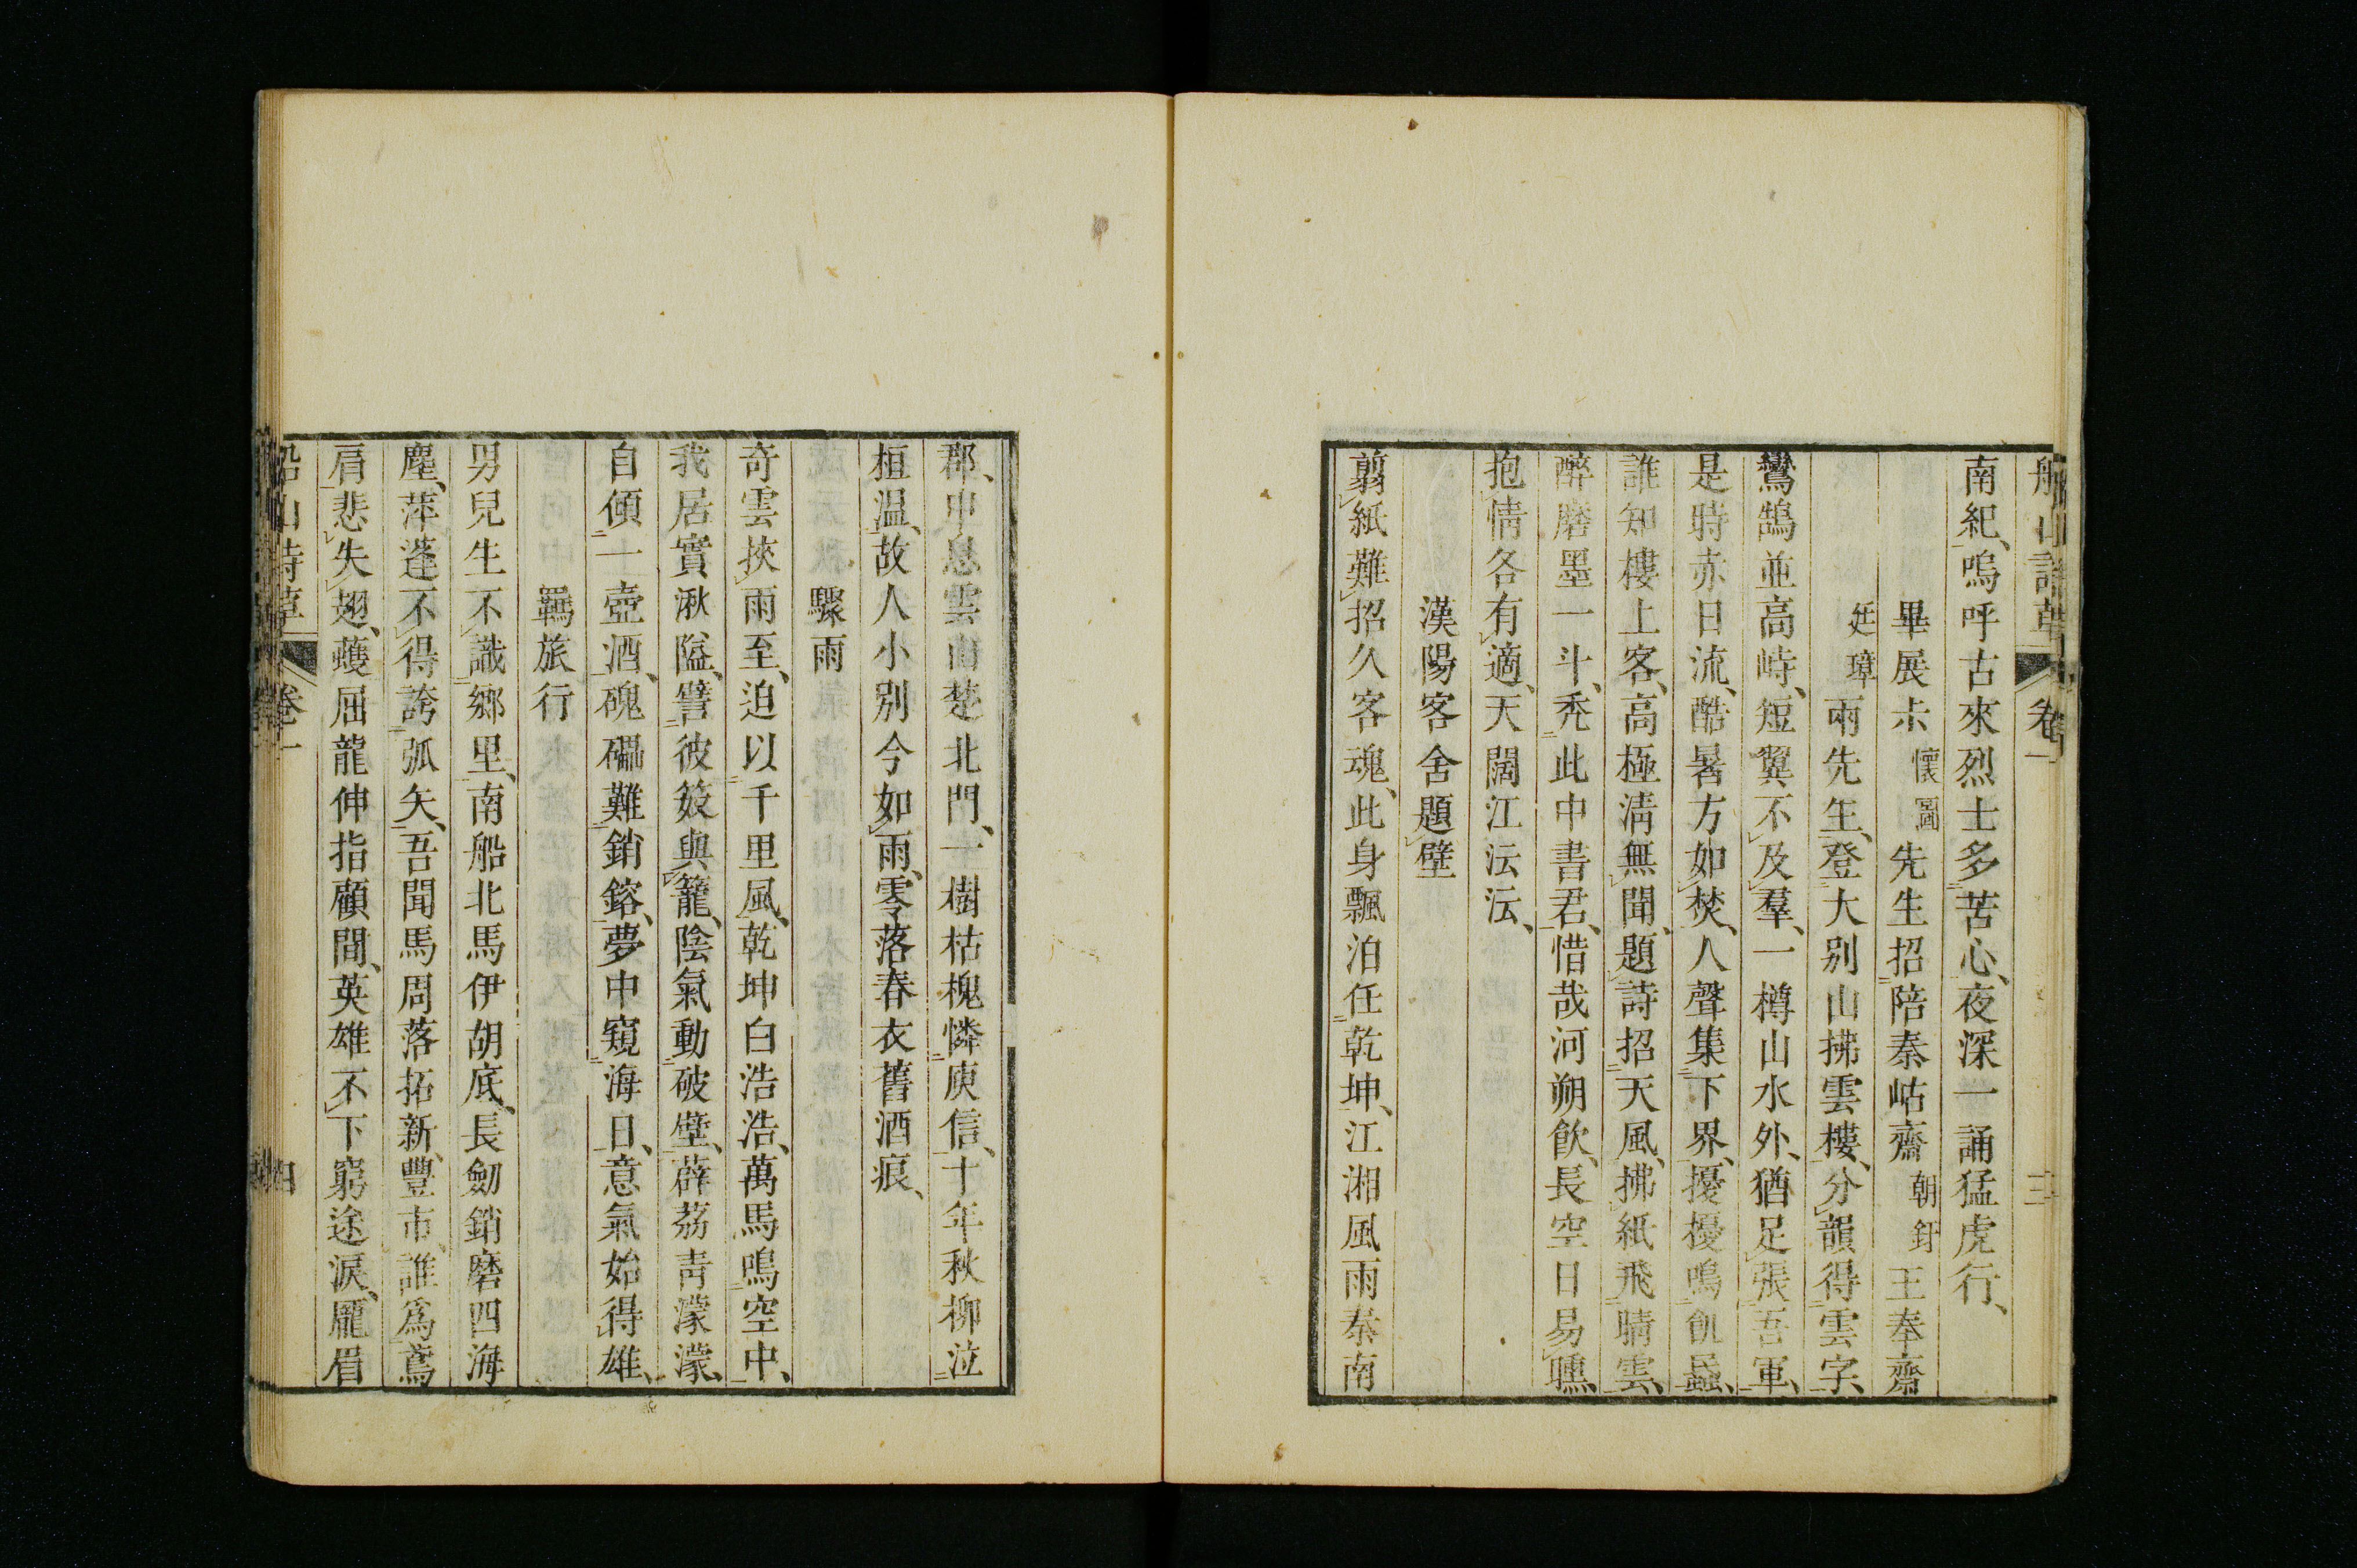 船山詩草 卷一 三
南紀、嗚呼古來烈士多苦心、夜深一誦猛虎行、
畢展尗懷圖先生招陪秦岵齋朝釪王奉齋
廷璋兩先生、登大別山拂雲樓、分韻得雲字、
鸞鵠並高峙、短翼不及羣、一樽山水外、猶足張吾軍、
是時赤日流、酷暑方如焚、人聲集下界、擾擾鳴飢蟁、
誰知樓上客、高極淸無聞、題詩招天風、拂紙飛晴雲、
醉磨墨一斗、禿此中書君、惜哉河朔飮、長空日易曛、
抱情各有適、天闊江沄沄、
漢陽客舍題壁
翦紙難招久客魂、此身飄泊任乾坤、江湘風雨泰南
郡、中息雲山楚北門、一樹枯槐憐庾信、十年秋柳泣
桓温、故人小別今如雨、零落春衣舊酒痕、
驟雨
奇雲挾雨至、迫以千里風、乾坤白浩浩、萬馬鳴空中、
我居實湫隘、譬彼笯與籠、陰氣動破壁、薜荔靑濛濛、
自傾一壺酒、磈礧難銷鎔、夢中窺海日、意氣始得雄、
羈旅行
男兒生不識鄉里、南船北馬伊胡底、長劒銷磨四海
塵、萍蓬不得誇弧矢、吾聞馬周落拓新、豐市誰爲鳶
肩悲失翅、蠖屈龍伸指顧間、英雄不下窮途淚、龐眉
船山詩草 卷一 四